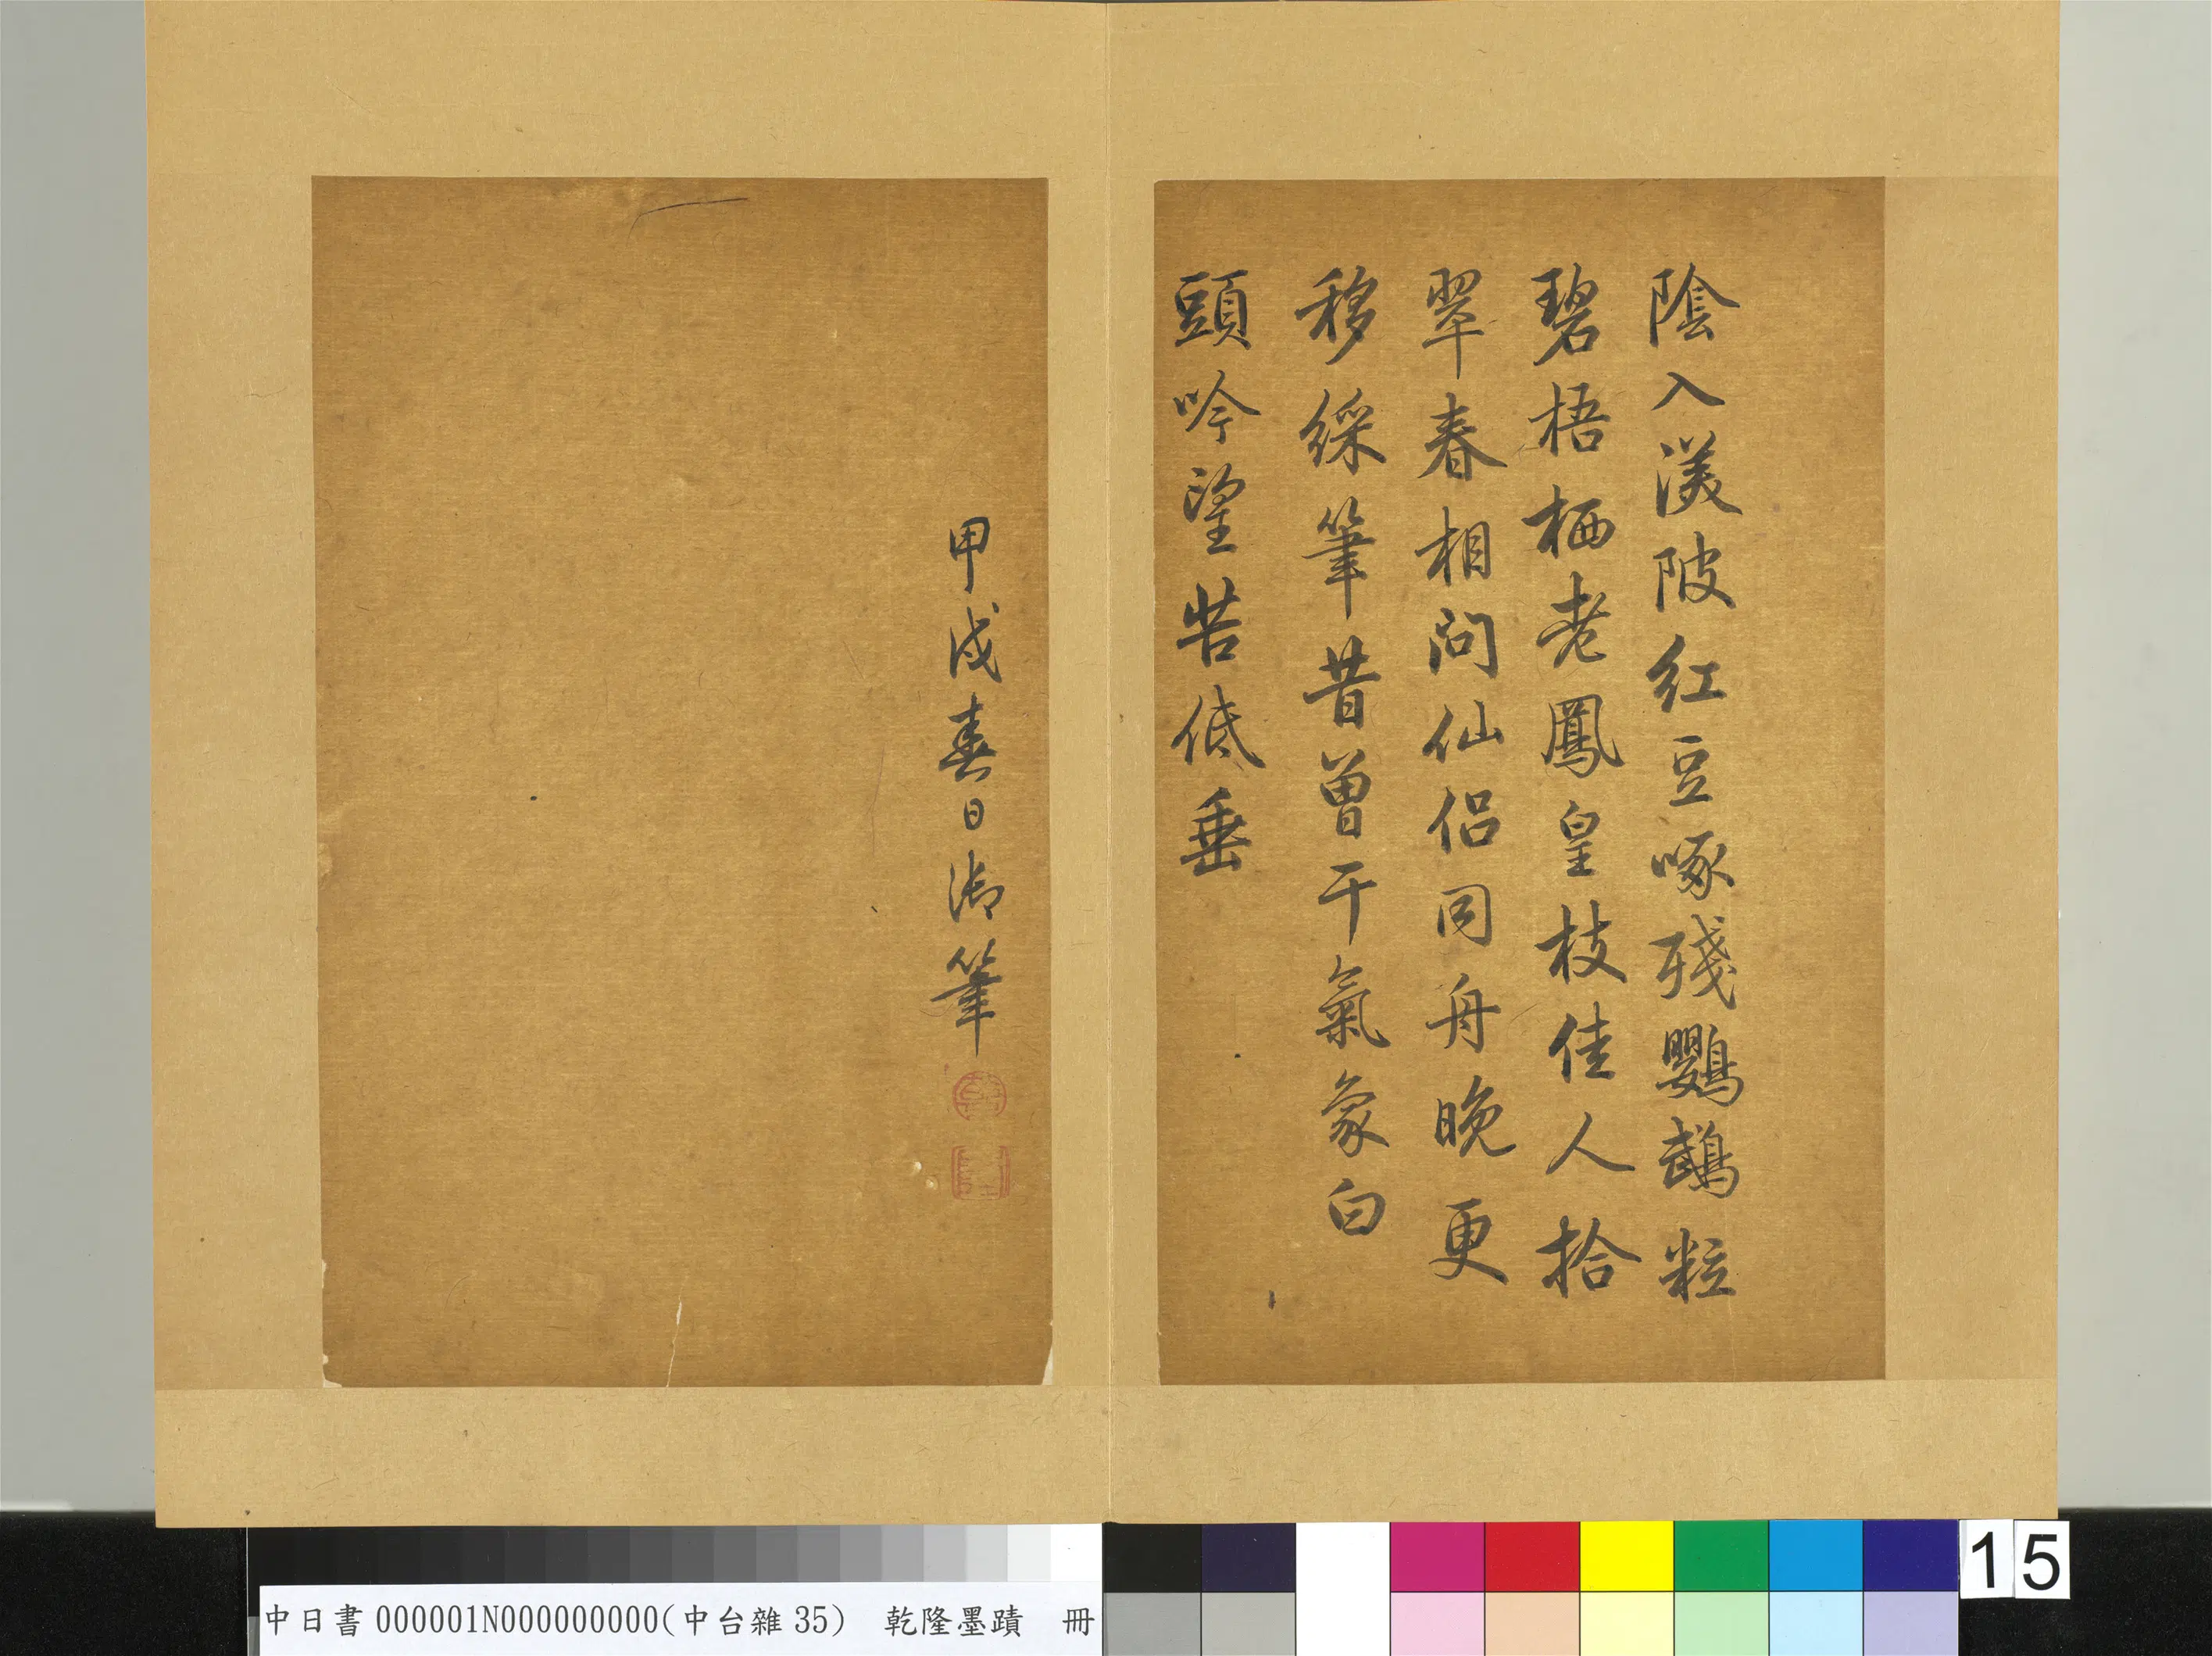 陰入渼陂紅豆啄殘鸚鵡粒
碧梧栖老鳳皇枝佳人拾
翠春相問仙侶同舟晚更
移綵筆昔曽干氣象白
頭吟望苦低垂
甲戌春日御筆
中日書000001N000000000(中台雜35) 乾隆墨蹟 冊
15